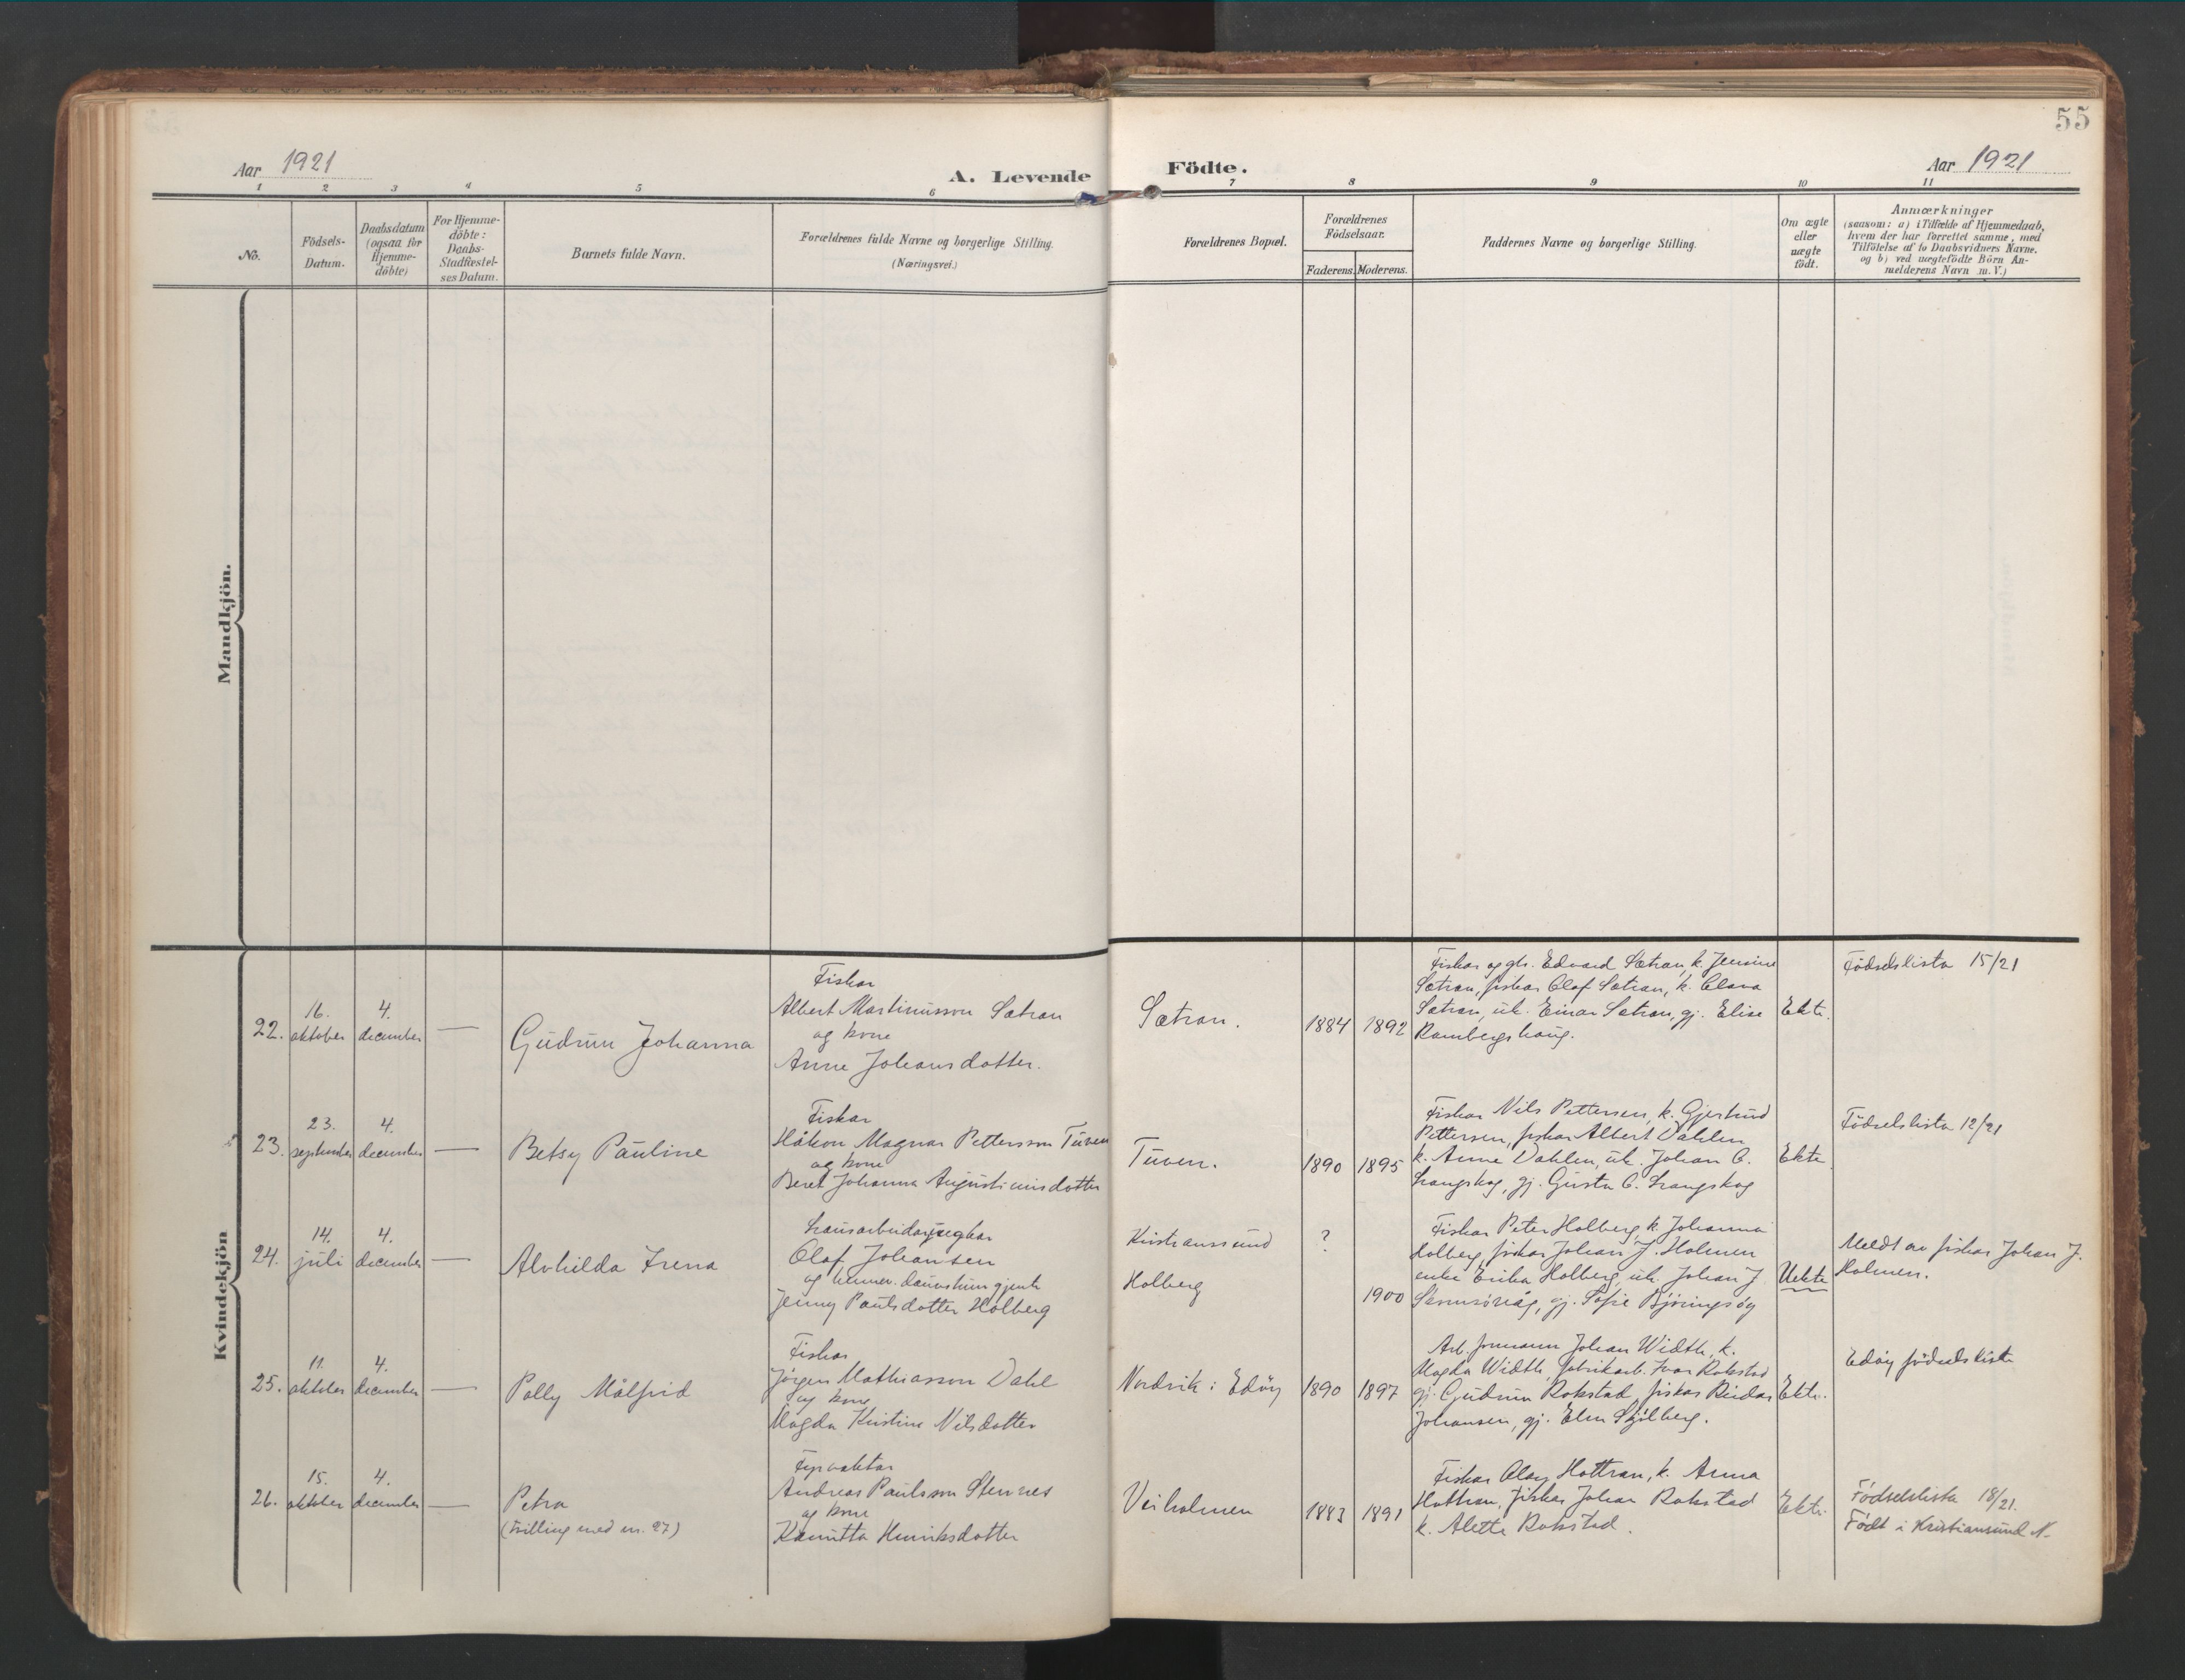 55
Aar 1921
A. Levende
Födte.
Aar 1921
1 2 3 4 5 6 7 8 9 10 11
No.
Födsels-
Datum.
Daabsdatum
(ogsaa for
Hjemme-
döbte)
For Hjemme-
döbte:
Daabs-
Stadfæstel-
ses Datum.
Barnets fulde Navn.
Forældrenes fulde Navne og borgerlige Stilling.
(Næringsvei.)
Forældrenes Bopæl.
Forældrenes
Födselsaar.
Faderens. Moderens.
Faddernes Navne og borgerlige Stilling.
Om ægte
eller
uægte
födt.
Anmærkninger
(saasom: a) i Tilfælde af Hjemmedaab,
hvem der har forrettet samme, med
Tilföielse af to Daabsvidners Navne.
og b) ved uægtefödte Börn An-
melderens Navn m. V.)
Mandkjön.
Kvindekjön
22.
16.
oktober
4.
december
—
Gudrun Johanna
Fiskar
Albert Martinusson Sætran
og kone
Anne Johansdotter.
Sætran.
1884 1892
Fiskar og gbr. Edvard Sætran, k. Jensine
Sætran, fiskar Olaf Sætran, k. Clara
Sætran, uk. Einar Sætran, gj. Elise
Rambergshaug.
Ekte.
Födselslista 15/21
23.
23.
september
4.
december
—
Betsy Pauline
Fiskar
Håkon Magnar Pettersson Tuven
og kone
Beret Johanna Augustinusdotter
Tuven.
1890 1895
Fiskar Nils Pettersen, k. Gjertrud
Pettersen, fiskar Albert Dahlen
k. Anne Dahlen, uk. Johan C.
Langskog, gj. Gusta C. Langskog
Ekte.
Födselslista 12/21
24.
14.
juli
4.
december
—
Alvhilda Irena
Lausarbeidar, ungkar
Olaf Johansen
og gjente
Jenny Paulsdotter Holberg
Kristianssund
Holberg
?
1900
Fiskar Peter Holberg, k. Johanna
Holberg, fiskar Johan J. Holmen
enke Erika Holberg, uk. Johan J.
gj. Sofie
Uekte
Meldt av fiskar Johan J.
Holmen.
25.
11.
oktober
4.
december
—
Polly Målfrid
Fiskar
Jörgen Mathiasson Dahl
og kone
Magda Kristine Nilsdotter
Nordvik i Edöy
1890 1897
Arb. formann Johan Width, k.
Magda Width, fabrikarb. Ivar Rokstad
gj. Gudrun Rokstad, fiskar Reidar
Johansen, gj. Elen Skjölberg.
Ekte.
Edöy födselsliste
26.
15.
oktober
4.
december
—
Petra
(tvilling med nr. 27)
Fyrvaktar
Andreas Paulsson Stennes
og kone
Kanutta Henriksdotter
Veiholmen
1883 1891
Fiskar Olay Hattran, k. Anna
Hattran, fiskar Johan Rokstad
k. Alette Rokstad.
Ekte.
Födselslista 18/21.
Födt i Kristiansund N.